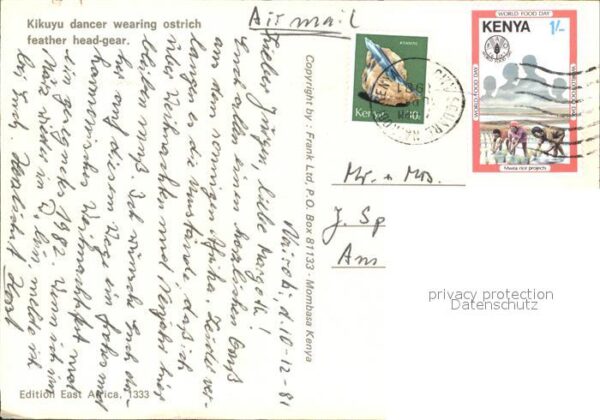 Kikuyu dancer wearing ostrich
feather head-gear.
Air mail
Nairobi, d. 10-12-81
Lieber Jürgen, liebe Margoth!
Euch allen einen herzlichen Gruß
aus dem sonnigen Afrika. Leider ver-
langen es die Umstände, daß ich
über Weihnachten und Neujahr hier
bleiben muß. Ich wünsche Euch da-
her auf diesem Wege ein frohes und
harmonisches Weihnachtsfest und
ein gesegnetes 1982. Wenn ich im
März wieder in D. bin, melde ich
bei Euch. Herzlichst Horst
Edition East Africa, 1333
Copyright by: - Frank Ltd, P.O. Box 81133 - Mombasa Kenya
Kenya
WORLD FOOD DAY
KENYA
1/-
WORLD FOOD DAY
Mwea rice projects
Mr. & Mrs.
J. Sp
Am
privacy protection
Datenschutz